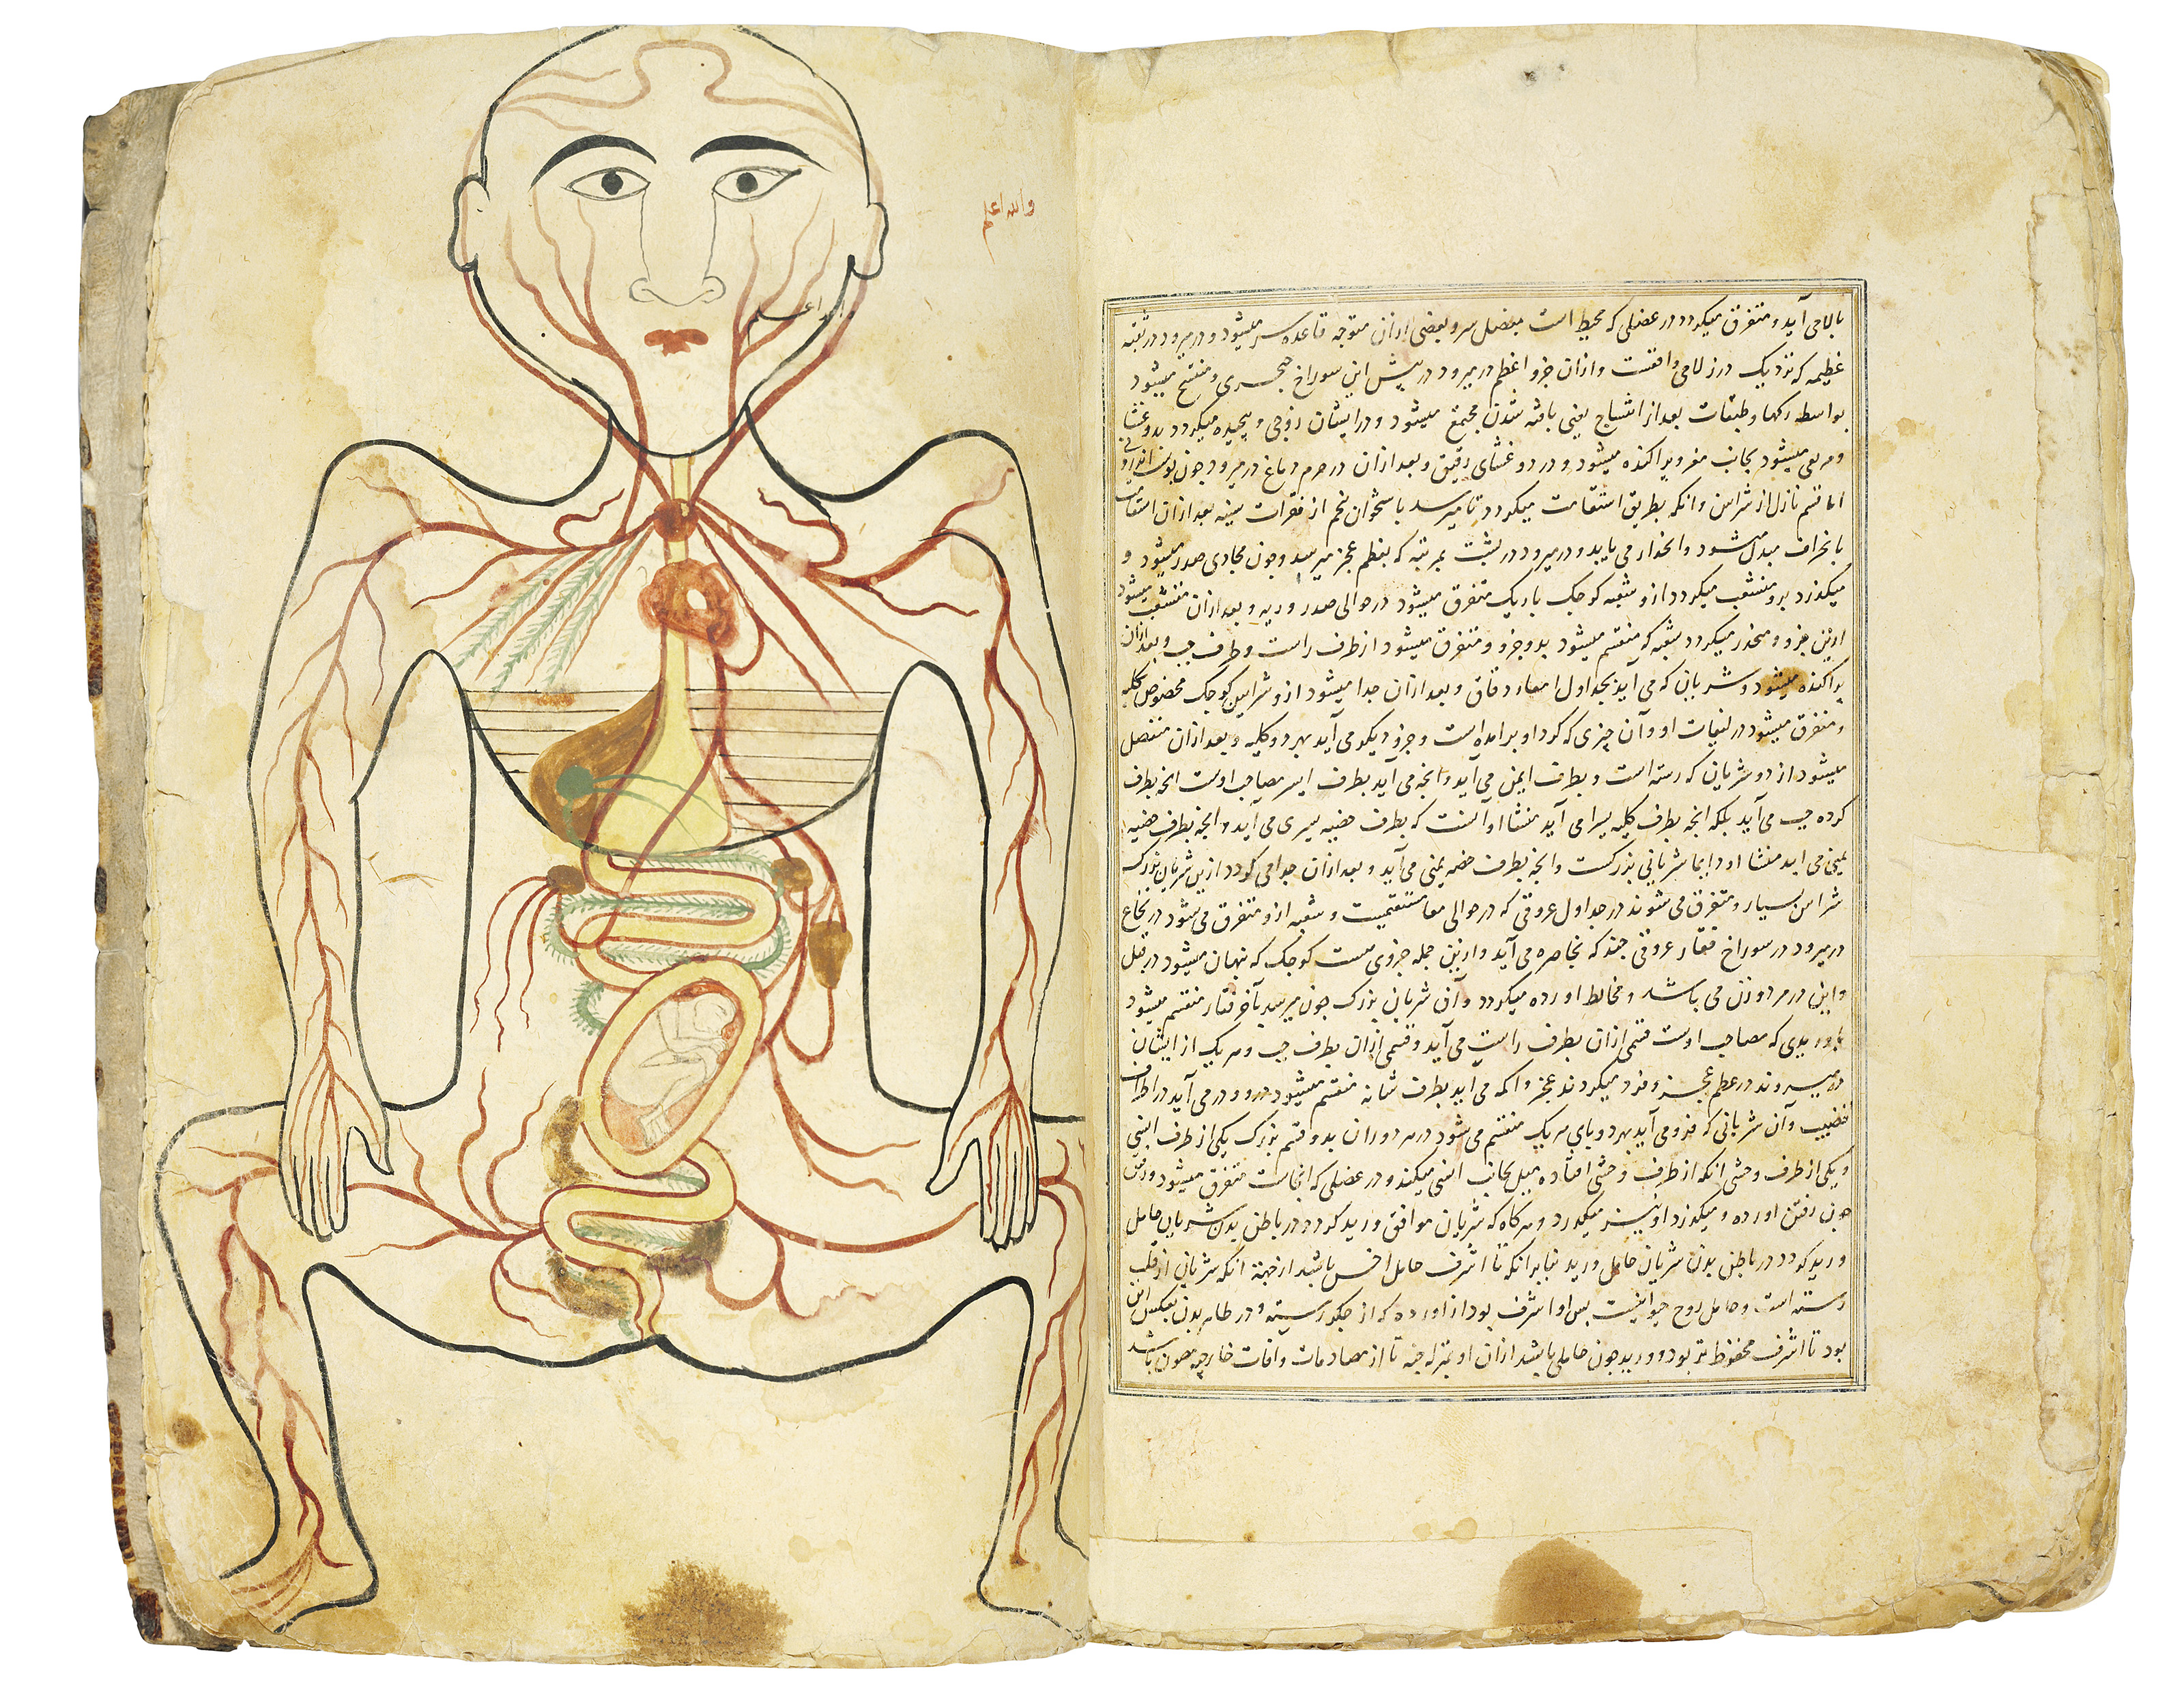 بالا می آید و متفرق میکردد در عضلی که محیط است بمفصل سر و بعضی ازان متوجه قاعده سر میشود و درمیرود در ثقبه
عظیمه که نزدیک درز لامی واقعست و ازان جزو اعظم درمیرود در پیش این سوراخ حجری و منتسج میشود
بواسطه رکها و طبقات بعد از انتساج یعنی بافته شدن مجتمع میشود و در ایشان زوجی و پیچیده میکردد بدو غشا
و مرتقی میشود بجانب مغز و پراکنده میشود در دو غشای رقیق و بعد ازان در جرم دماغ درمیرود چون بوسد
اما قسم نازل از شراین وانکه بطریق استقامت میکردد تا میرسد باستخوان پنجم از فقرات سینه بعد ازان استقامت
بانحراف مبدل میشود و انحدار می یابد و درمیرود در پشت بمرتبه که بعظم عجز میرسد و چون محاذی صدر میشود و
میکذرد برو منشعب میکردد ازو شعبه کوچک باریک متفرق میشود در حوالی صدر و ریه و بعد ازان منشعب میشود
ازین جزو و منحدر میکردد شعبه که منقسم میشود بدو جزو و متفرق میشود از طرف راست و طرف چپ و بعد ازان
پراکنده میشود و شریانی که می آید بجداول امعاء دقاق و بعد ازان جدا میشود ازو شراین کوچک مخصوص بکلیه
و متفرق میشود در لفیات او و آن چیزی که کرد او برامده است و جزو دیکر می آید بهر دو کلیه و بعد ازان منفصل
میشود از دو شریان که رسته است و بطرف ایمن می آید و انچه می آید بطرف ایسر مصاحب اوست انچه بطرف
کرده چپ می آید بلکه انچه بطرف کلیه یسرا می آید منشا او آنست که بطرف خصیه یسری می آید و انچه بطرف خصیه
یمنی می اید منشا او دایما شریانی بزرکست و انچه بطرف خصیه یمنی می آید و بعد ازان جدا می کردد ازین شریان بزرک
شراین بسیار و متفرق می شوند در جداول عروقی که در حوالی معا مستقیمست و شعبه ازو متفرق می شود در نخاع
درمیرود در سوراخ فقار عروقی چند که بخاصره می آید و ازین جمله جزوی هست کوچک که پنهان میشود در قبل
و این در مرد و زن می باشد و مخالط اورده میکردد و آن شریان بزرک چون میرسد بآخر فقار منقسم میشود
باوریدی که مصاحب اوست قسمی ازان بطرف راست می آید و قسمی ازان بطرف چپ و هر یک از ایشان
درمیروند در عظم عجز و فرود میکردند عجز و انکه می اید بطرف مثانه منقسم میشود درو و در می آید در اطراف
قضیب و آن شریانی که فرو می آید بهر دو پای هر یک منقسم می شود در هر دو ران بدو قسم بزرک یکی از طرف انسی
و یکی از طرف وحشی انکه از طرف وحشی افتاده میل بجانب انسی میکند و در عضلی که انجاست متفرق میشود و رفتن
چون رفتن اورده و میکذرد او نیز میکذرد و هرکاه که شریان موافق ورید کردد در باطن بدن شریان حامل
ورید کردد در باطن بدن شریان حامل ورید بنابر انکه تا اشرف حامل اخس باشد از جهة انکه شریان از قلب
رسته است و حامل روح حیوانیست پس او اشرف بود از اورده که از جکر رسته و در ظاهر بدن بعکس این
بود تا اشرف محفوظ تر بود و ورید چون حامل باشد ازان او بمنزله جنه تا از مصادمات و آفات خارجیه مصون باشد
والله اعلم
اعلم